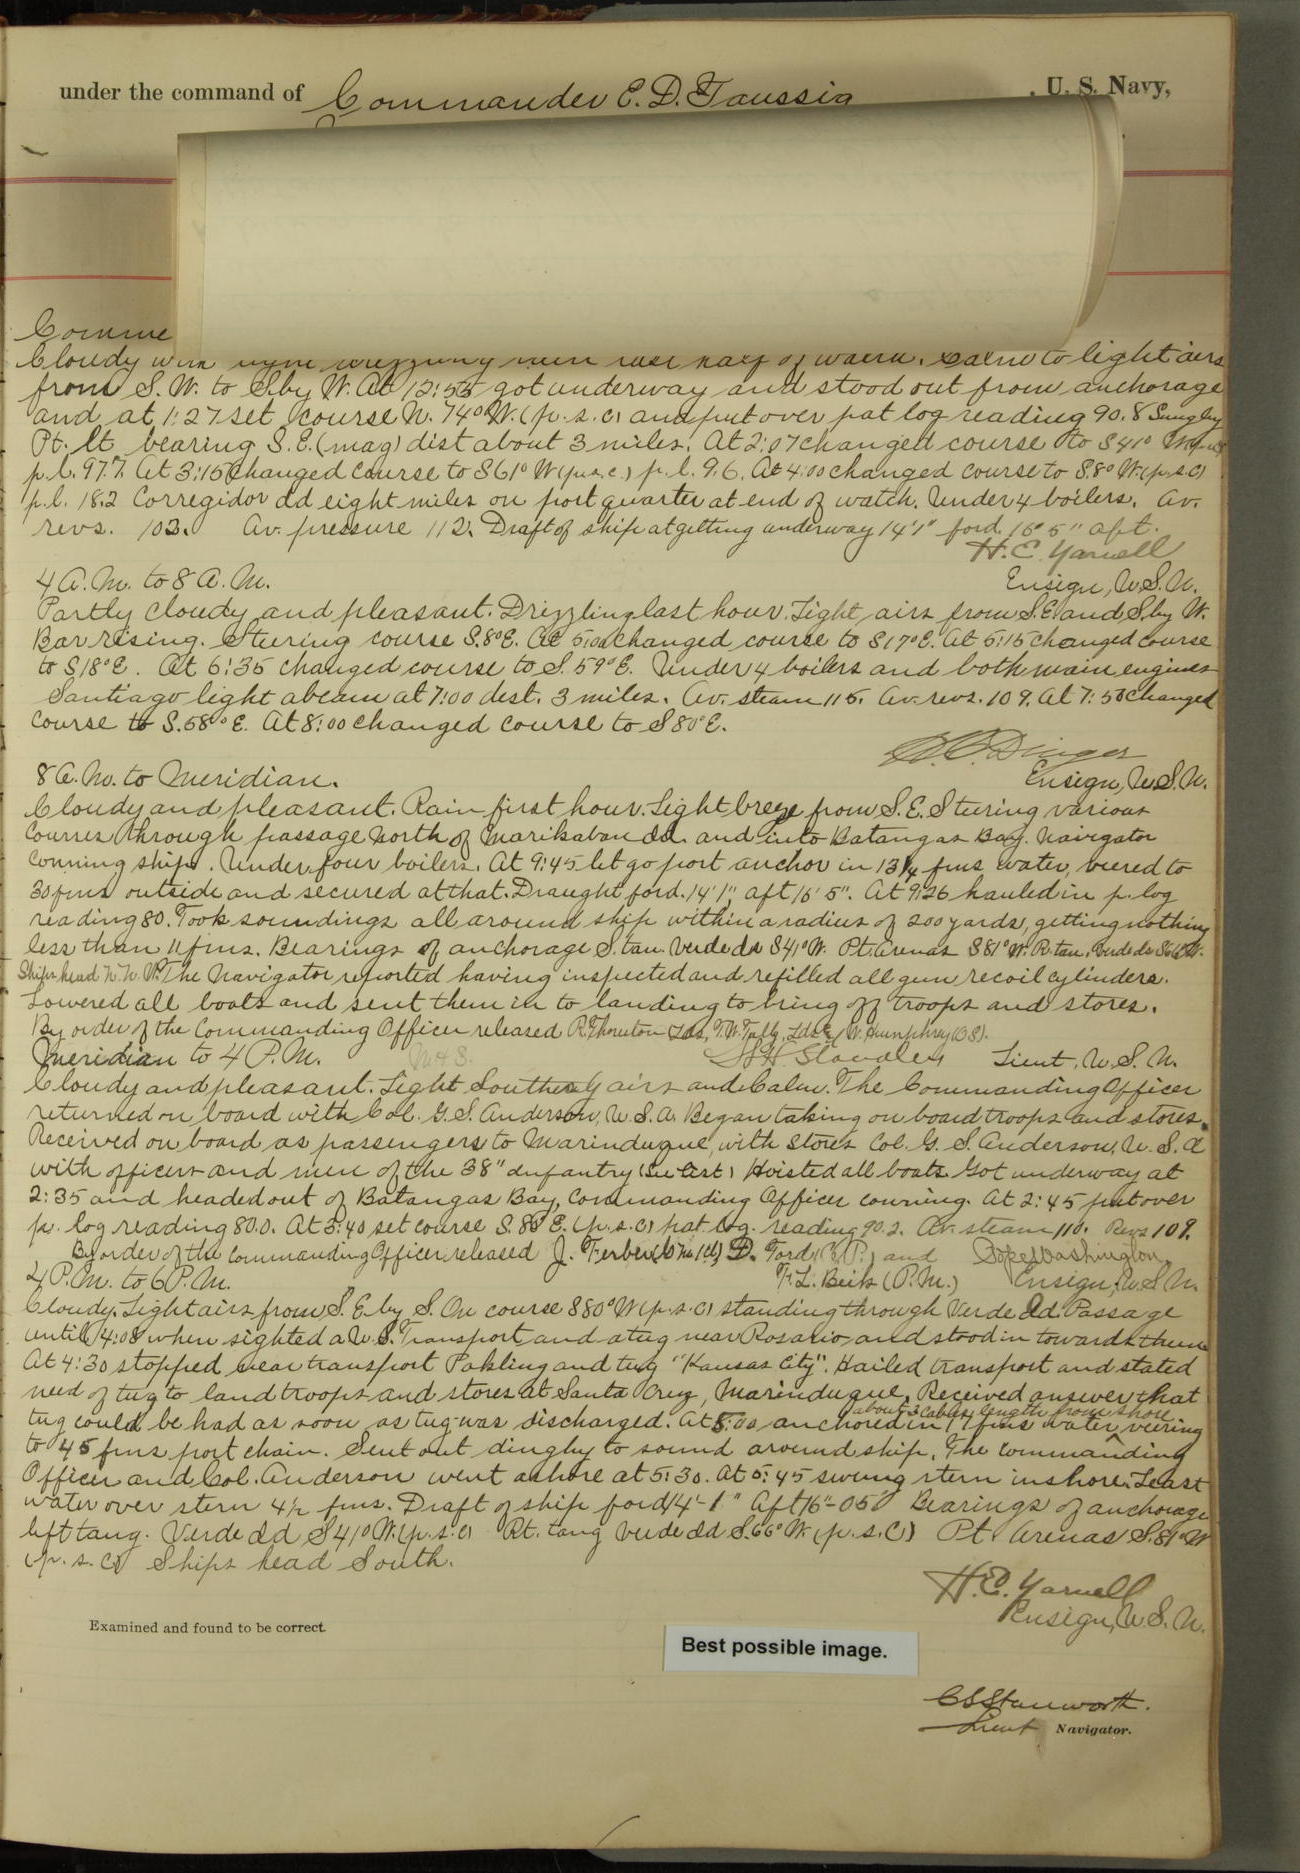 under the command of Commander E. D. Taussig , U. S. Navy,
Comme
Cloudy with light drizzling rain last half of watch. Calm to light airs
from S. W. to S. by W. At 12:53 got underway and stood out from anchorage
and at 1:27 set course N. 74° W. (p. s. c) and put over pat log reading 90.8 Sangley
Pt. lt bearing S. E. (mag) dist about 3 miles. At 2:07 changed course to S 41° W
p. l. 97.7. At 3:15 changed course to S 61° W (p. s. c.) p. l. 9.6. At 4:00 changed course to S. 8° W. (p. s. c)
p. l. 18.2 Corregidor Id eight miles on port quarter at end of watch. Under 4 boilers. Av.
revs. 103. Av. pressure 112. Draft of ship at getting underway 14' 1" ford. 16' 5" aft.
H. E. Yarnell
Ensign, U. S. N.
4 A. M. to 8 A. M.
Partly cloudy and pleasant. Drizzling last hour. Light airs from S. E. and S. by W.
Bar rising. Steering course S. 8° E. At 5:00 changed course to S 17° E. At 5:15 changed course
to S 18° E. At 6:35 changed course to S. 59° E. Under 4 boilers and both main engines
Santiago light abeam at 7:00 dist. 3 miles. Av. steam 115. Av. revs. 109. At 7:50 changed
course to S. 58° E. At 8:00 changed course to S 80° E.
Dinger
Ensign, U. S. N.
8 A. M. to Meridian.
Cloudy and pleasant. Rain first hour. Light breeze from S. E. Steering various
courses through passage North of Marikaban Id. and into Batangas Bay. Navigator
conning ship. Under four boilers. At 9:45 let go port anchor in 13 1/4 fms water, veered to
30 fms outside and secured at that. Draught ford. 14' 1", aft 16' 5". At 9:26 hauled in p. log
reading 80. Took soundings all around ship within a radius of 200 yards, getting nothing
less than 11 fms. Bearings of anchorage S. tan. Verde Id S 41° W. Pt. Arenas S 81° W. R. tan. Verde Id S 66° W.
Ships head N. N. W. The Navigator reported having inspected and refilled all gun recoil cylinders.
Lowered all boats and sent them in to landing to bring off troops and stores.
By order of the Commanding Officer released R. Thornton Lds, T. W. Tally, Lds, W. Humphrey (O S).
Meridian to 4 P. M. Lieut, U. S. N.
Cloudy and pleasant. Light Southerly airs and Calm. The Commanding Officer
returned on board with Col. G. S. Anderson, U. S. A. Began taking on board troops and stores.
Received on board as passengers to Marinduque, with stores Col. G. S. Anderson, U. S. A
with officers and men of the 38" Infantry (See List) Hoisted all boats. Got underway at
2:35 and headed out of Batangas Bay, Commanding Officer conning. At 2:45 put over
p. log reading 80.0. At 3:40 set course S. 80° E. (p. s. c) pat log. reading 90.2. Av. steam 110. Revs 109.
By order of the Commanding Officer released J. Ferber D. Ford (C. P.) and Pope Washington
4 P. M. to 6 P. M. F. L. Beik (P. M.) Ensign, U. S. N.
Cloudy. Light airs from S. E. by S. On course S 80° W (p. s. c) standing through Verde Id. Passage
until 4:08 when sighted a U. S. Transport and a tug near Rosario, and stood in towards them
At 4:30 stopped near transport Pakling and tug "Kansas City". Hailed transport and stated
need of tug to land troops and stores at Santa Cruz, Marinduque. Received answer that
tug could be had as soon as tug was discharged. At 5:00 anchored about 3 cables length from shore in 11 fms water veering
to 45 fms port chain. Sent out dinghy to sound around ship. The Commanding
Officer and Col. Anderson went ashore at 5:30. At 5:45 swung stern inshore. Least
water over stern 4 1/2 fms. Draft of ship ford 14'-1" Aft 16"-05" Bearings of anchorage
left tang. Verde Id S 41° W. (p. s. c) Rt. tang Verde Id S. 66° W. (p. s. c) Pt Arenas S. 81° W
(p. s. c) Ships head South.
H. E. Yarnell
Ensign, U. S. N.
Examined and found to be correct.
Best possible image.
C S Stanworth.
Lieut Navigator.